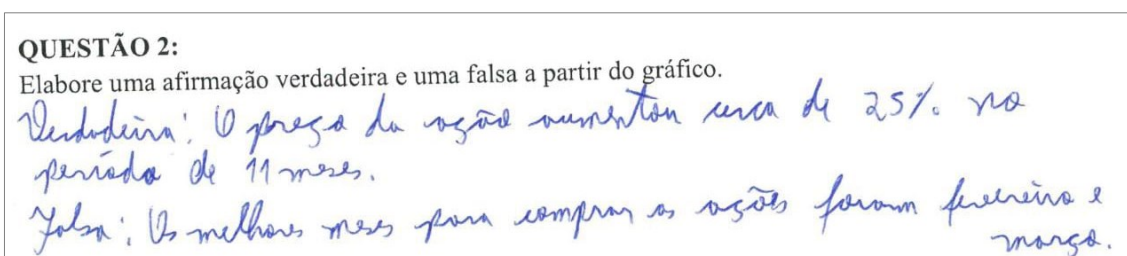 QUESTÃO 2:
Elabore uma afirmação verdadeira e uma falsa a partir do gráfico.
Verdadeira: O preço da ação aumentou cerca de 25% no
período de 11 meses.
Falsa: Os melhores meses para comprar as ações foram fevereiro e
março.